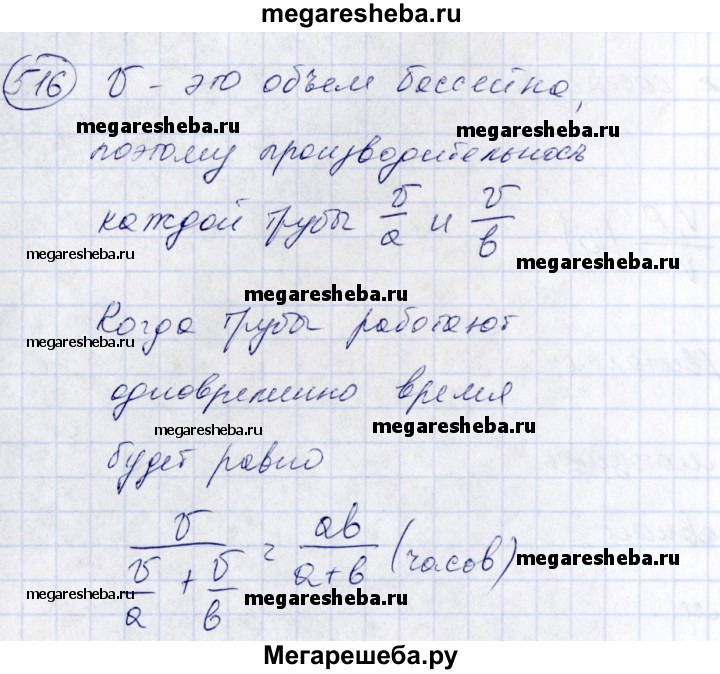 megaresheba.ru
516 V - это объем бассейна,
megaresheba.ru megaresheba.ru
поэтому производительнось
каждой трубы V/a и V/b
megaresheba.ru megaresheba.ru
megaresheba.ru
Когда трубы работают
megaresheba.ru
одновременно время
megaresheba.ru megaresheba.ru
будет равно
V/(V/a + V/b) = ab/(a+b) (часов)
megaresheba.ru
megaresheba.ru megaresheba.ru megaresheba.ru
Мегарешеба.ру